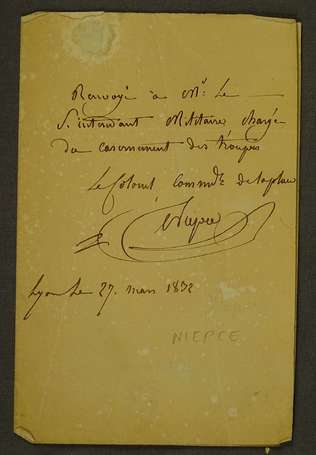 Renvoyé à Mr. Le
S. intendant Militaire chargé
du casernement des troupes
Le Colonel Commdt. de la place
Niepce
Lyon Le 27. mars 1832
NIEPCE